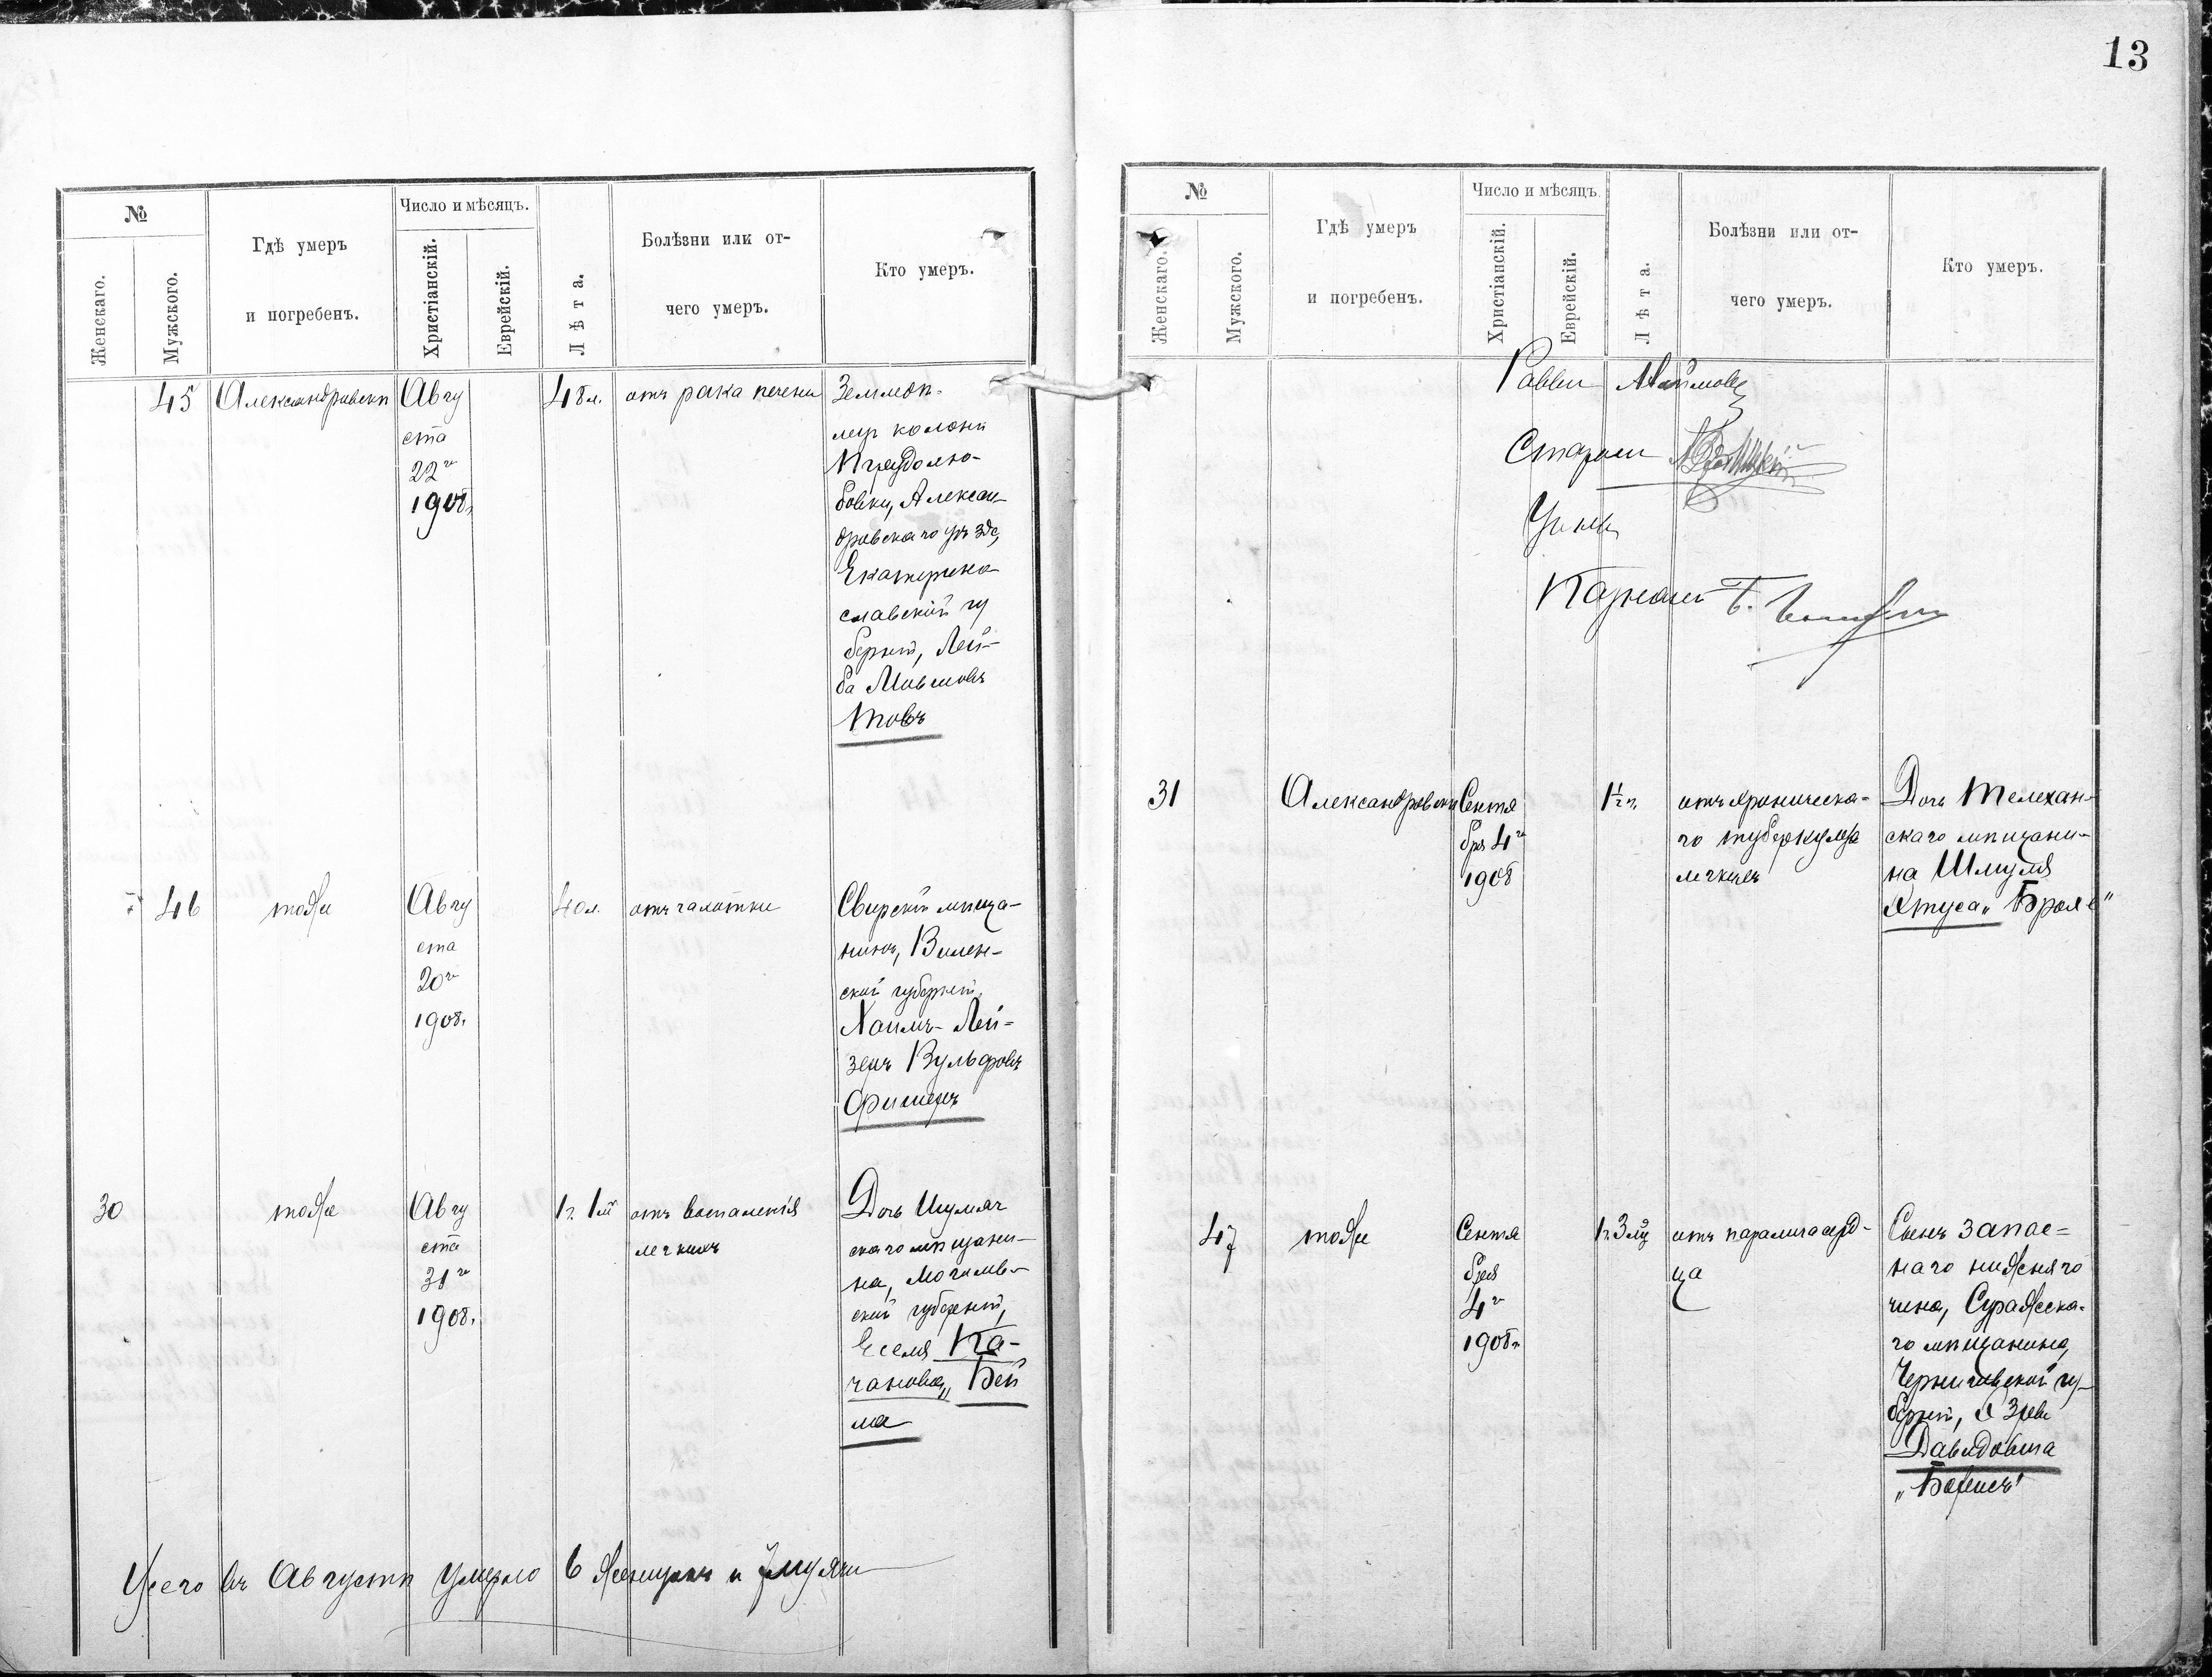 13
№
Женскаго.
Мужского.
Гдѣ умеръ
и погребенъ.
Число и мѣсяцъ.
Христіанскій.
Еврейскій.
Лѣта.
Болѣзни или от-
чего умеръ.
Кто умеръ.
45
Александровскъ
Авгу
ста
22го
1908г.
48 л.
отъ рака печени
Землед-
колоніи
Трудолю-
бовки, Алексан
дровскаго уѣзда,
Екатерино
славской гу
берніи, Лей-
ба Мовшовъ
Товъ
46
тоже
Авгу
ста
20го
1908г.
40 л.
отъ чахотки
Свирскій мѣща-
нинъ, Вилен-
ской губерніи,
Хаимъ-Лей-
зеръ Вульфовъ
30
тоже
Авгу
ста
31го
1908г.
1г. 1м
отъ воспаленія
легкихъ
Дочь Шумяч
скаго мѣщани-
на, Могилев-
ской губерніи,
Еселя Ка-
чановка, Бей
ла
Всего въ Августѣ умерло 6 женщинъ и 7 мужчин
№
Женскаго.
Мужского.
Гдѣ умеръ
и погребенъ.
Число и мѣсяцъ.
Христіанскій.
Еврейскій.
Лѣта.
Болѣзни или от-
чего умеръ.
Кто умеръ.
Раввин
Старост
Учены
Казначей
31
Александровскъ
Сентя
бря 4го
1908
1½ г.
отъ хроническа-
го туберкулеза
легкихъ
Дочь Телехан-
скаго мѣщани-
на Шмуля
47
тоже
Сентя
бря
4го
1908г.
1г. 3м
отъ паралича серд-
ца
Сынъ запас-
наго нижняго
чина, Суражска-
го мѣщанина,
Черниговской гу-
берніи,
Давидовича